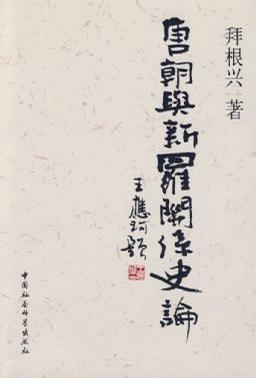 拜根兴 著
唐朝與新羅關係史論
王應珂题
中国社会科学出版社